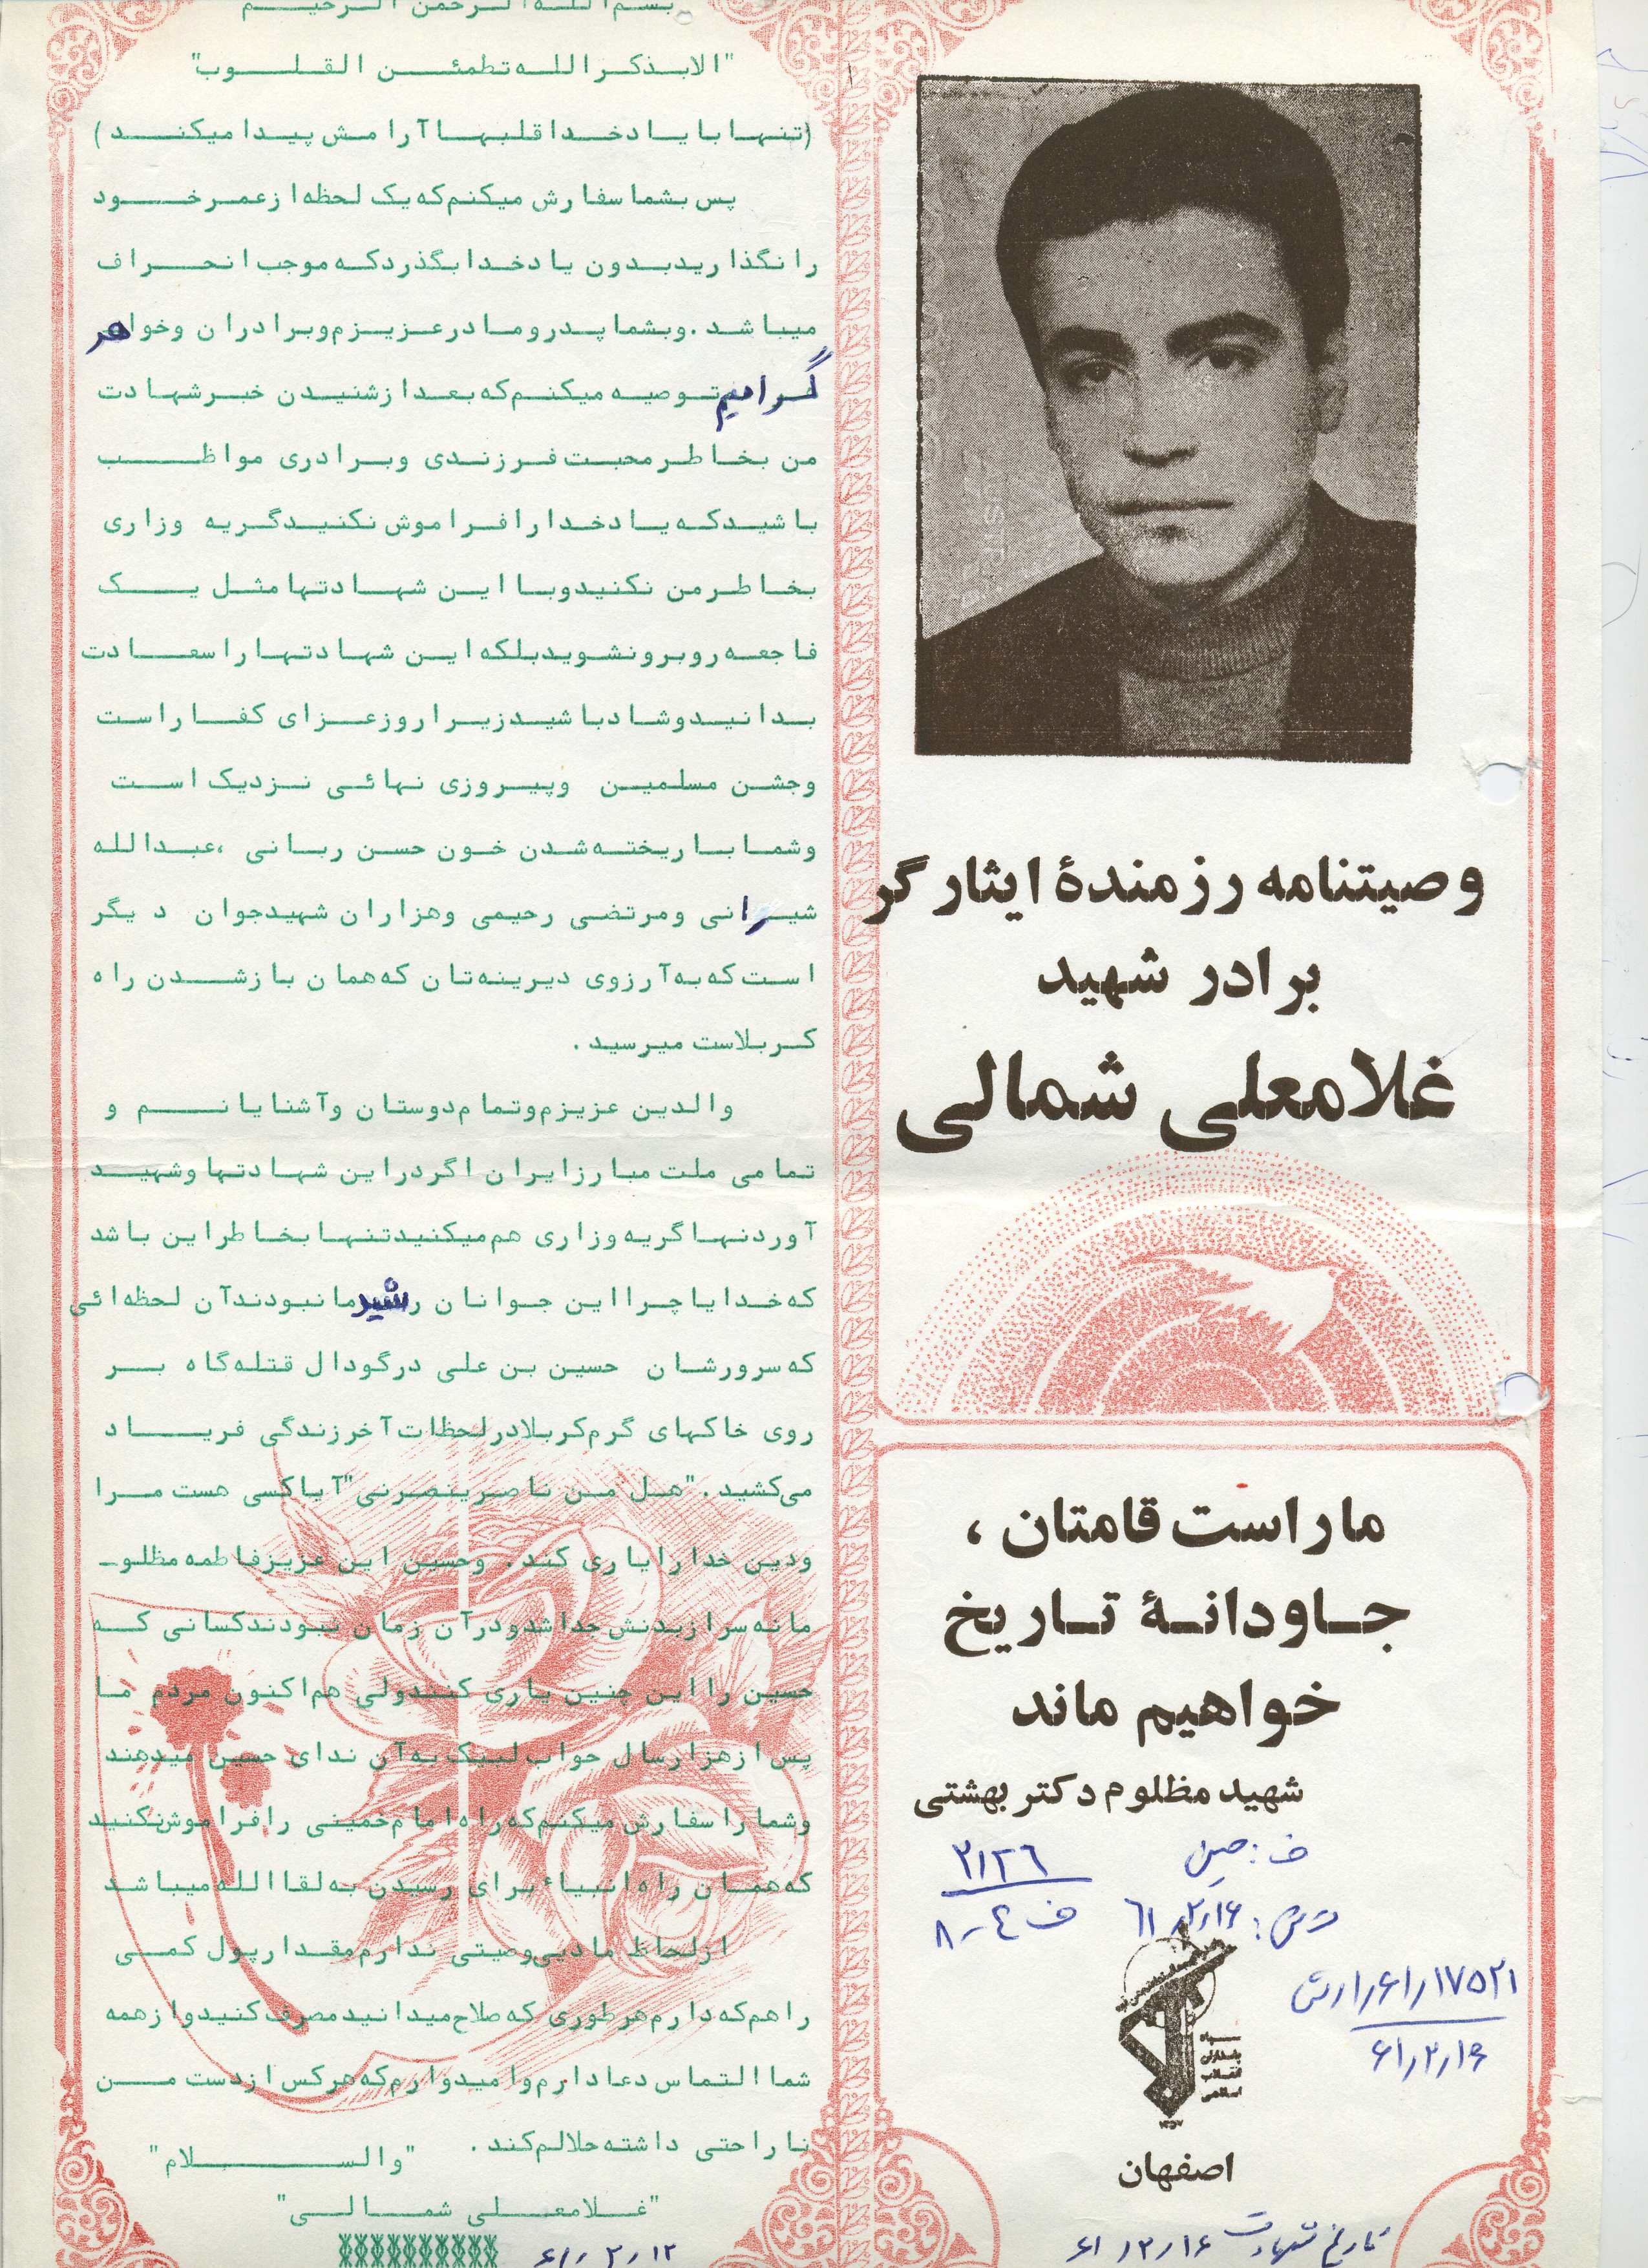 بسم الله الرحمن الرحیم
"الابذکر الله تطمئن القلوب"
(تنها با یاد خدا قلبها آرامش پیدا میکند)
پس بشما سفارش میکنم که یک لحظه از عمر خود
را نگذارید بدون یاد خدا بگذرد که موجب انحراف
میباشد. وبشما پدر و مادر عزیزم وبرادران وخواهر
گرامیم توصیه میکنم که بعد از شنیدن خبر شهادت
من بخاطر محبت فرزندی وبرادری مواظب
باشید که یاد خدا را فراموش نکنید گریه وزاری
بخاطر من نکنید وبا این شهادتها مثل یک
فاجعه روبرو نشوید بلکه این شهادتها را سعادت
بدانید وشاد باشید زیرا روز عزای کفار است
وجشن مسلمین وپیروزی نهائی نزدیک است
وشما با ریخته شدن خون حسن ربانی ،عبدالله
شیرانی ومرتضی رحیمی وهزاران شهید جوان دیگر
است که به آرزوی دیرینه تان که همان باز شدن راه
کربلاست میرسید.
والدین عزیزم وتمام دوستان وآشنایانم و
تمامی ملت مبارز ایران اگر در این شهادتها وشهید
آوردنها گریه وزاری هم میکنید تنها بخاطر این باشد
که خدایا چرا این جوانان رشید ما نبودند آن لحظه ائی
که سرورشان حسین بن علی در گودال قتله گاه بر
روی خاکهای گرم کربلا در لحظات آخر زندگی فریاد
می کشید. "هل من ناصر ینصرنی" آیا کسی هست مرا
ودین خدا را یاری کند. وحسین این عزیز فاطمه مظلو-
مانه سر از بدنش جدا شد ودر آن زمان نبودند کسانی که
حسین را این چنین یاری کنند ولی هم اکنون مردم ما
پس از هزار سال جواب لبیک به آن ندای حسین میدهند
وشما را سفارش میکنم که راه امام خمینی را فراموش نکنید
که همان راه انبیاء برای رسیدن به لقاالله میباشد
از لحاظ مادیی وصیتی ندارم مقدار پول کمی
را هم که دارم هر طوری که صلاح میدانید مصرف کنید واز همه
شما التماس دعا دارم وامیدوارم که هر کس از دست من
ناراحتی داشته حلالم کند.
"والسلام"
"غلامعلی شمالی"
۶۱/۲/۱۲
وصیتنامه رزمندهٔ ایثارگر
برادر شهید
غلامعلی شمالی
ما راست قامتان ،
جاودانهٔ تاریخ
خواهیم ماند
شهید مظلوم دکتر بهشتی
۲۱۲۶
ف ٤-۸
۶۱/۲/۱۶
۶۱/۲/۱۶
سپاه
پاسداران
انقلاب
اسلامی
اصفهان
تاریخ شهادت ۶۱/۲/۱۶